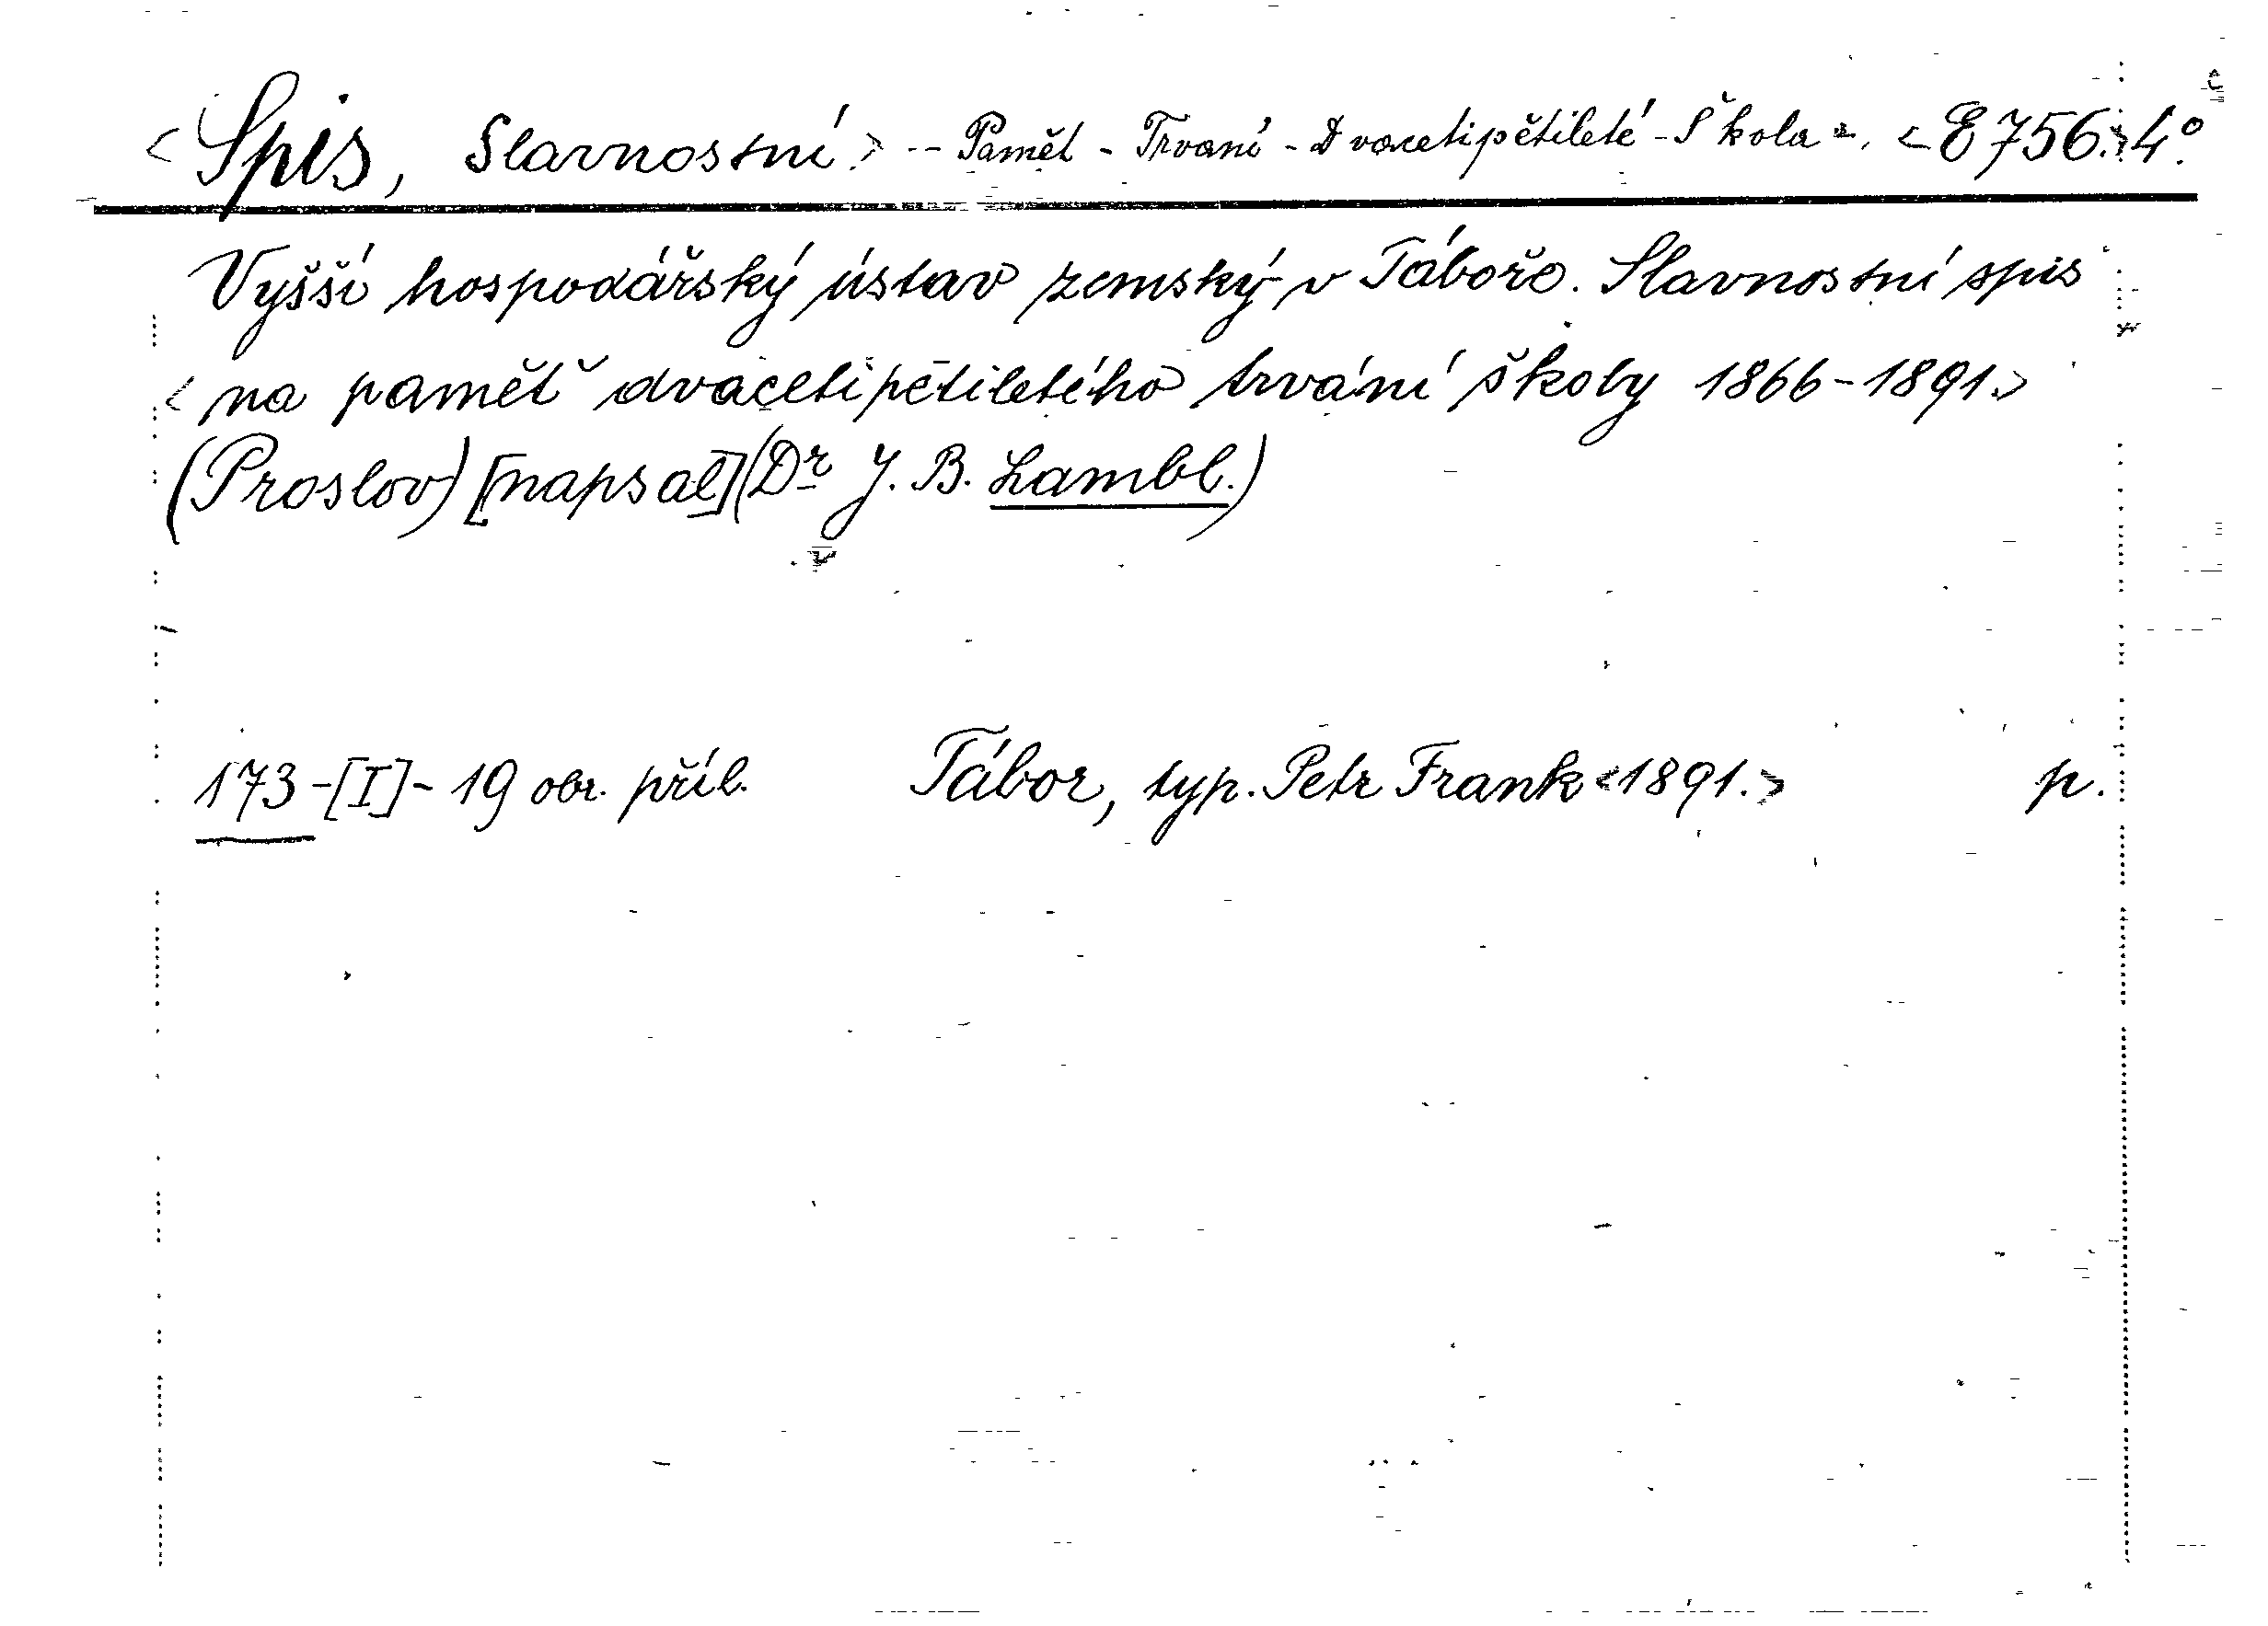 <Spis, Slavnostní.> -- Pamět - Trvaní - Dvacetipětileté - Škola =. <E 756.> 4.°
Vyšší hospodářský ústav zemský v Táboře. Slavnostní spis
<na pamět dvacetipětiletého trvání školy 1866-1891.>
(Proslov) [napsal] (Dr J. B. Lambl.)
173 -[I]- 19 obr. příl. Tábor, typ. Petr Frank <1891.> p.